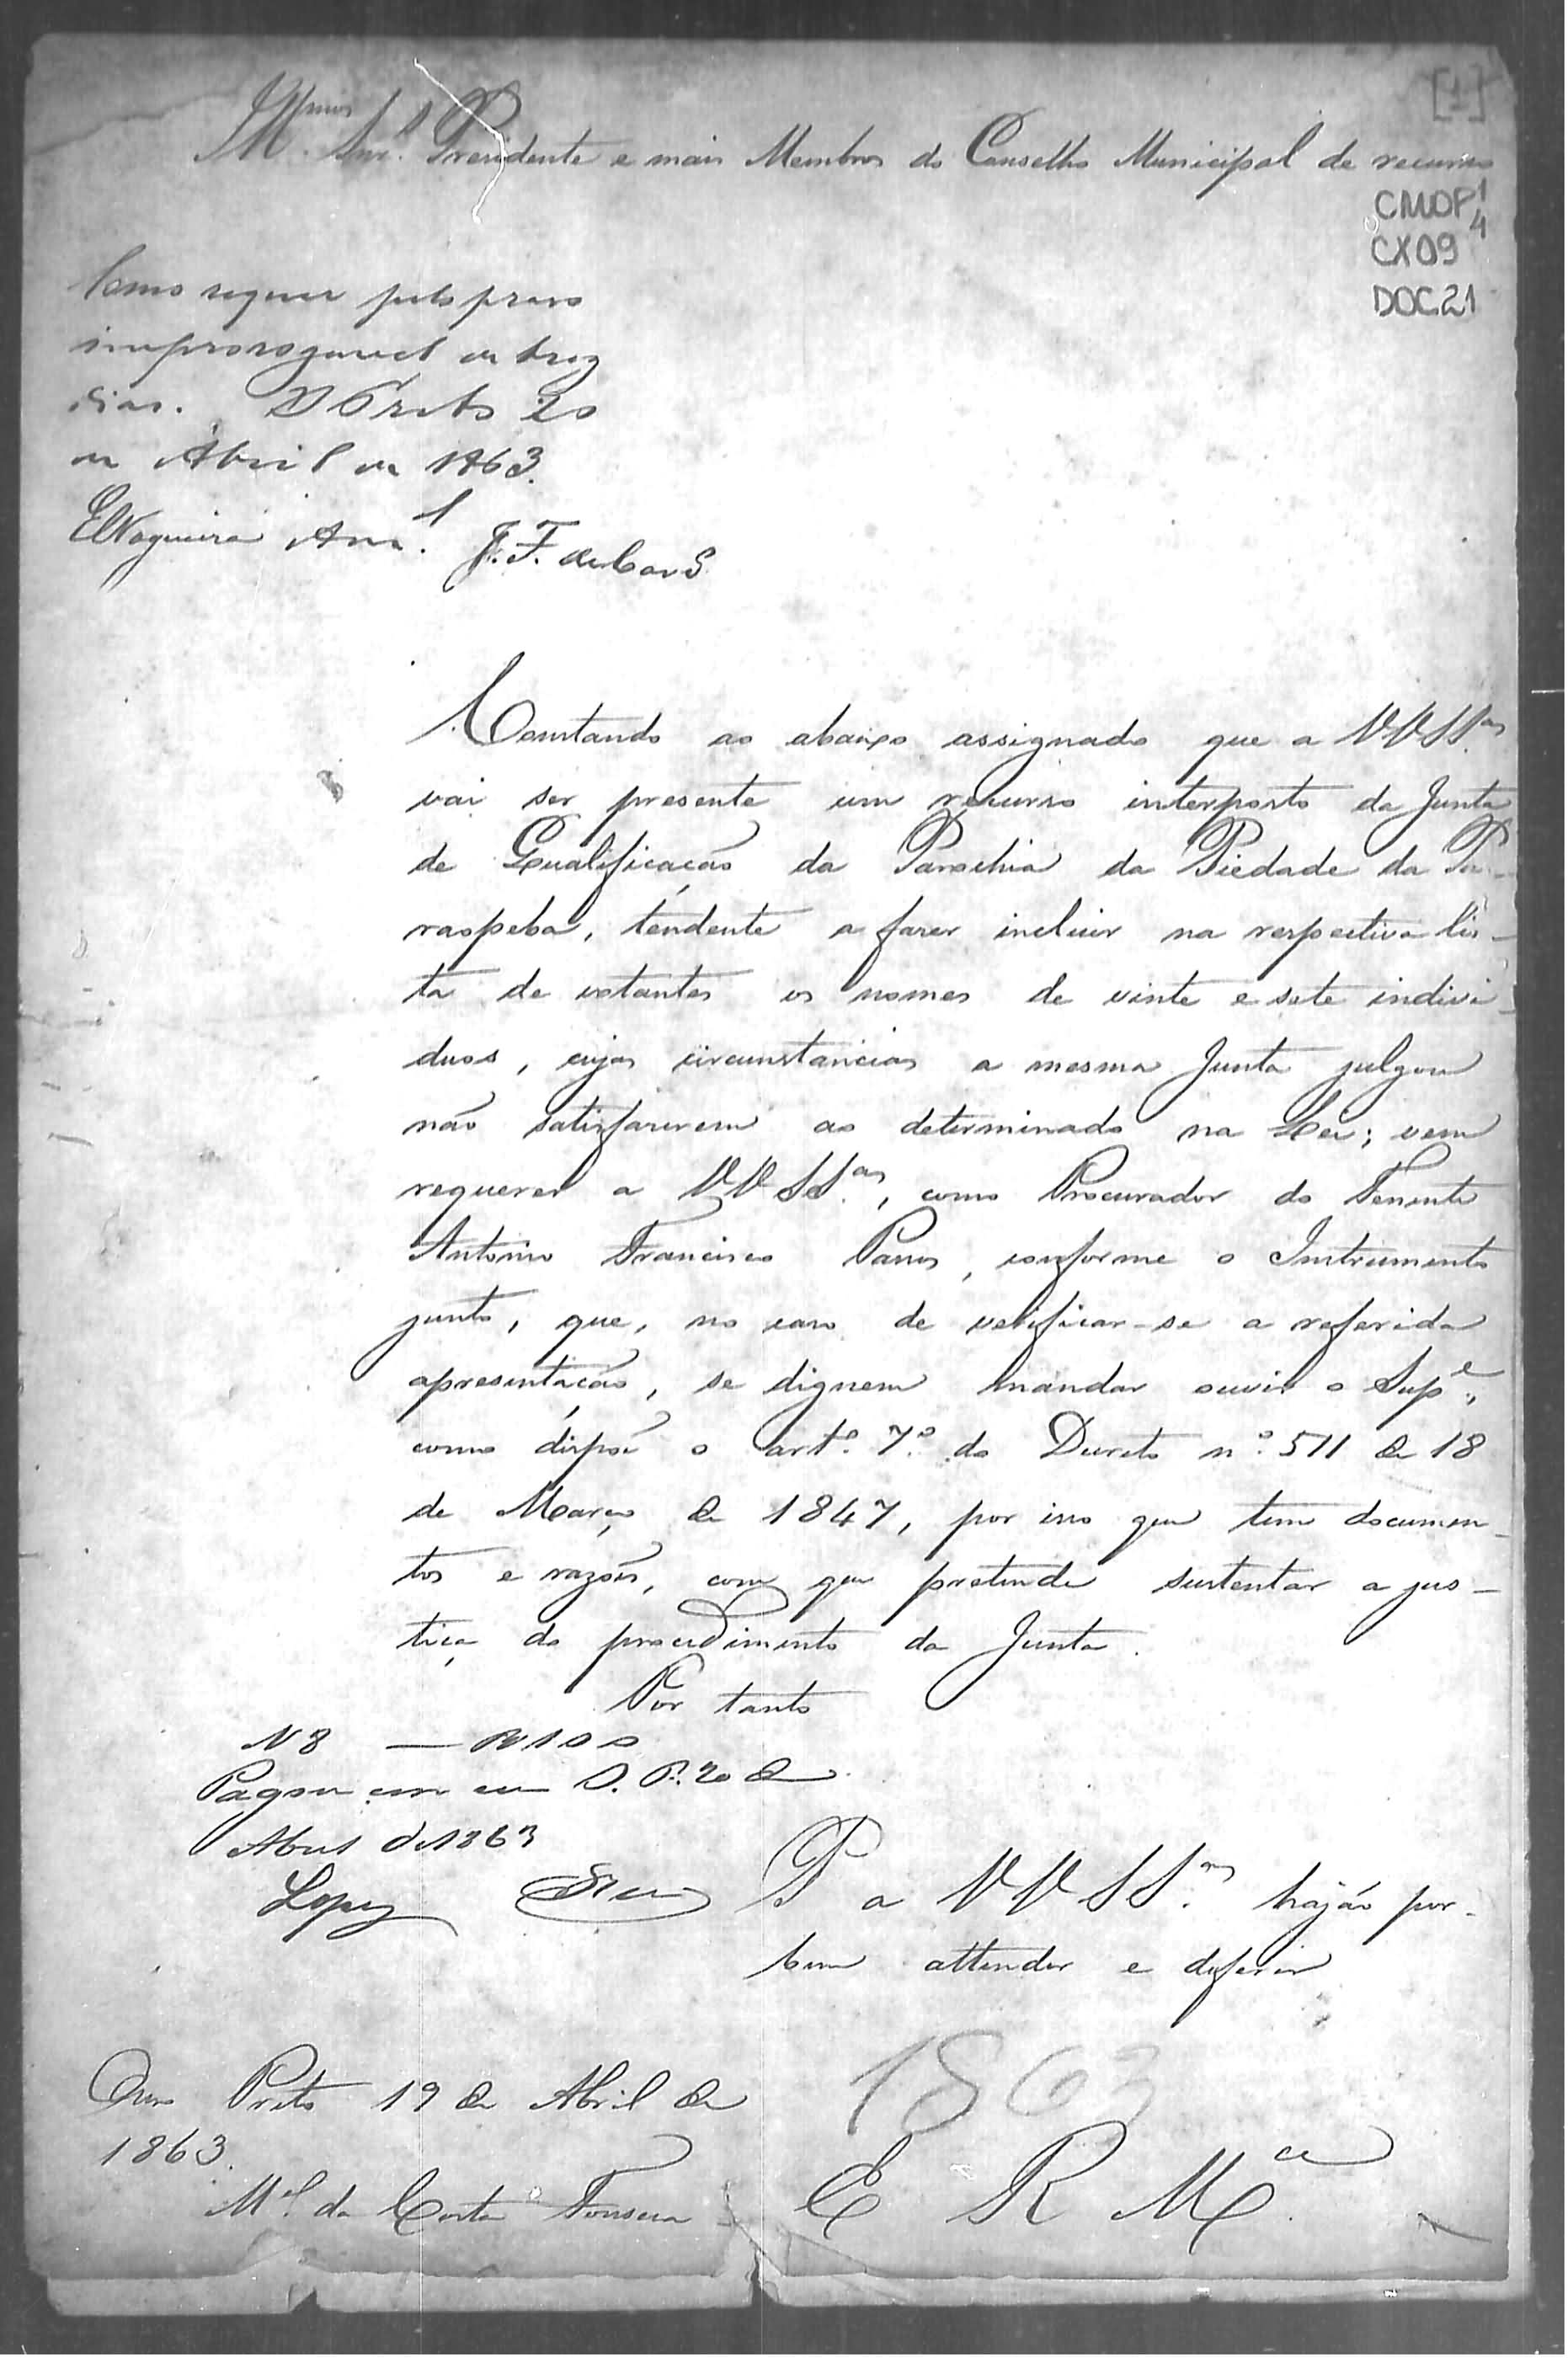 [1]
Ill.mos Snr.s Presidente e mais Membros do Conselho Municipal de recurso
CMOP 1
4
CX09
DOC.21
Como requer pelo praso
improrogavel de trez
dias. O Preto 20
de Abril de 1863.
Nogueira J. F. de
Constando ao abaixo assignado que a VVSS.as
vai ser presente um recurso interposto da Junta
de Qualificação da Parochia da Piedade da Pa-
raopeba, tendente a fazer incluir na respectiva lis-
ta de votantes os nomes de vinte e sete indivi-
duos, cujas circunstancias a mesma Junta julgou
não satisfazerem ao determinado na Lei; vem
requerer a VVSS.as, como Procurador do Tenente
Antonio Francisco Passos, conforme o Instrumento
junto, que, no caso de verificar-se a referida
apresentação, se dignem mandar ouvir o Sup.e,
como dispõe o art.º 7.º do Decreto n.º 511 de 18
de Março de 1847, por isso que tem documen-
tos e razões, com que pretende sustentar a jus-
tiça do procedimento da Junta.
Por tanto
N 8 — 100
Pagou cem O. P. 20 de
Abril de 1863
Lopez
P a VVSS.as hajão por
bem attender e deferir
Ouro Preto 19 de Abril de
1863.
1863
M.el da Costa Fonseca
E R M.ce